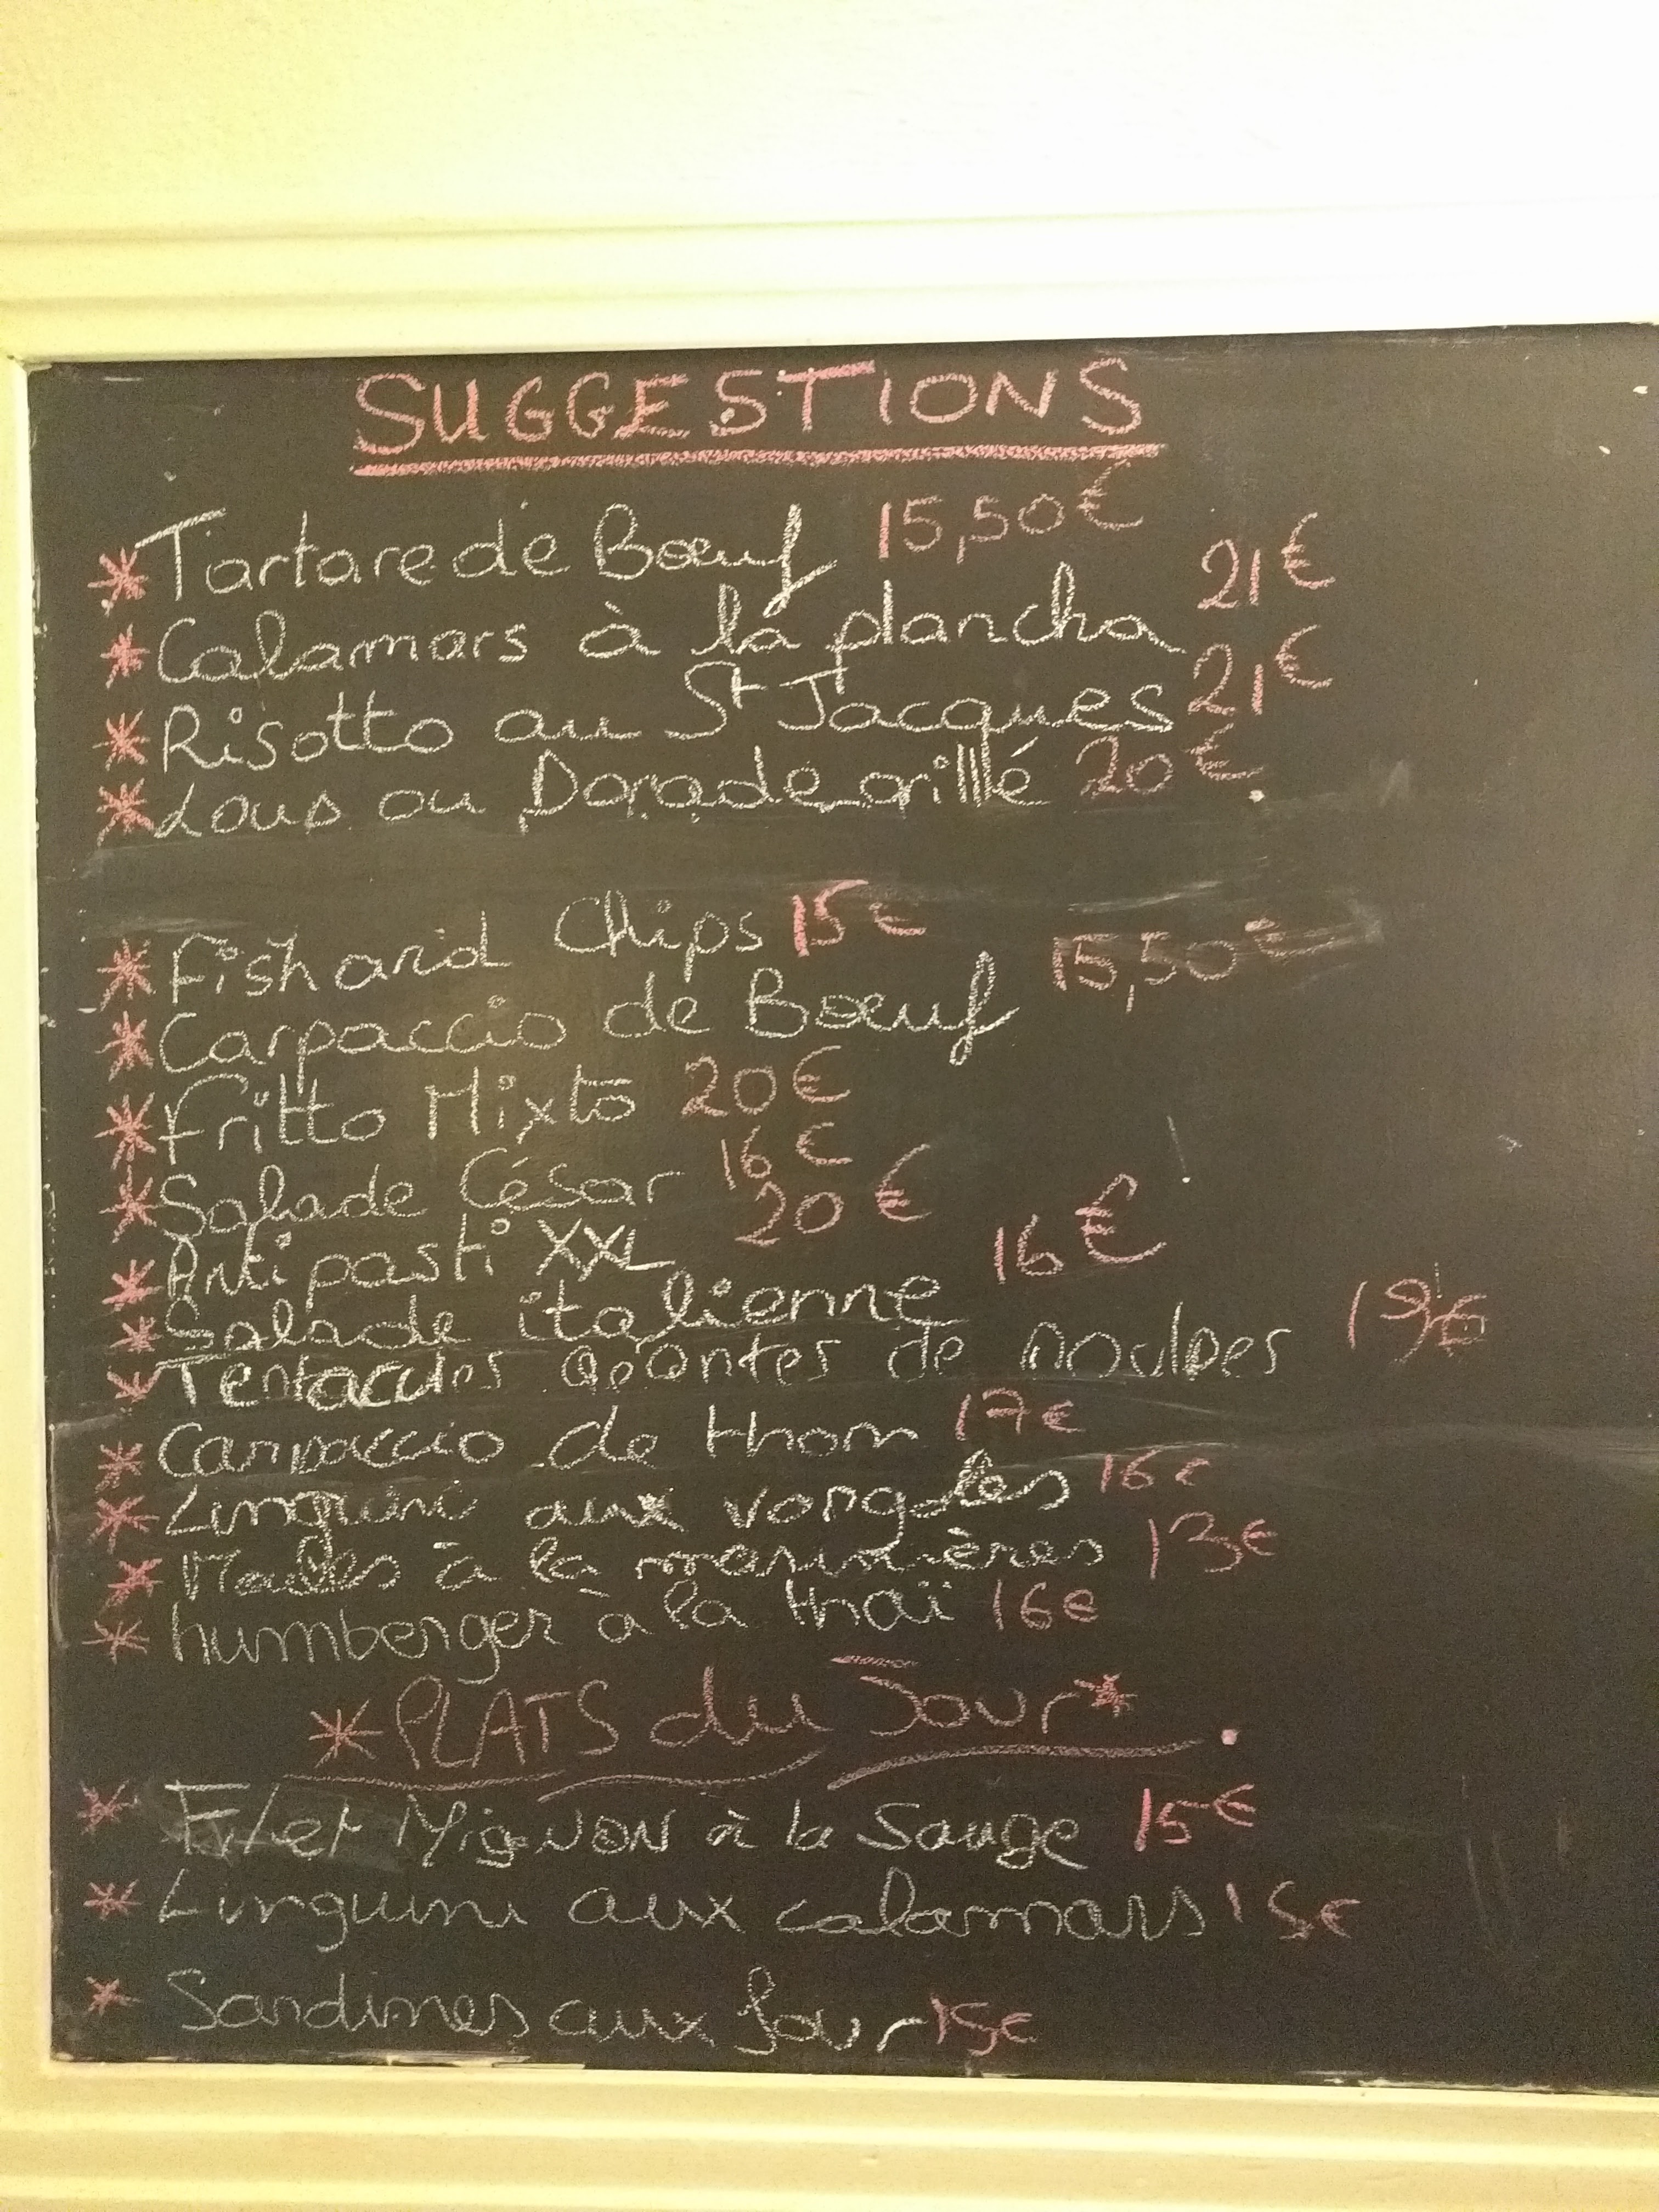 SUGGESTIONS
* Tartare de Bœuf 15,50€
* Calamars à la plancha 21€
* Risotto au St Jacques 21€
* Loup ou Dorade grillé 20€
* Fish and Chips 15€
* Carpaccio de Bœuf 15,50€
* Fritto Mixto 20€
* Salade César 16€
* Anti pasti XXL 20€
* Salade italienne 16€
* Tentacules géantes de poulpes 19€
* Carpaccio de thon 17€
* Linguini aux vongoles 16€
* Moules à la marinières 13€
* humberger à la thaï 16€
* PLATS du Jour *
* Filet Mignon à la Sauge 15€
* Linguini aux calamars 15€
* Sardines aux four 15€